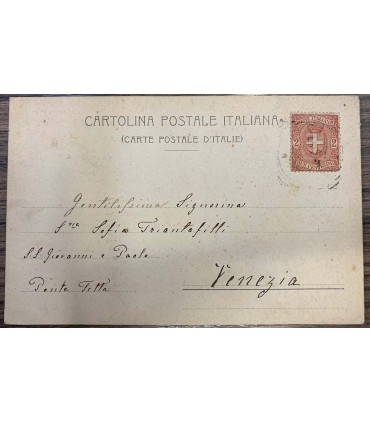 CARTOLINA POSTALE ITALIANA
(CARTE POSTALE D'ITALIE)
2 2
Gentilissima Signorina
S.na Sofia Triantafilli
S.S. Giovanni e Paolo
Venezia
Ponte Tettà